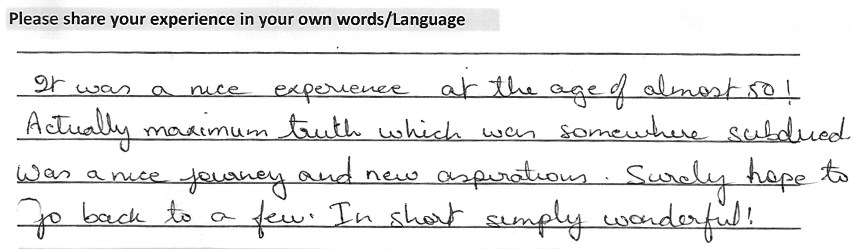 Please share your experience in your own words/Language
It was a nice experience at the age of almost 50!
Actually maximum truth which was somewhere subdued
was a nice journey and new aspirations. Surely hope to
go back to a few. In short simply wonderful!